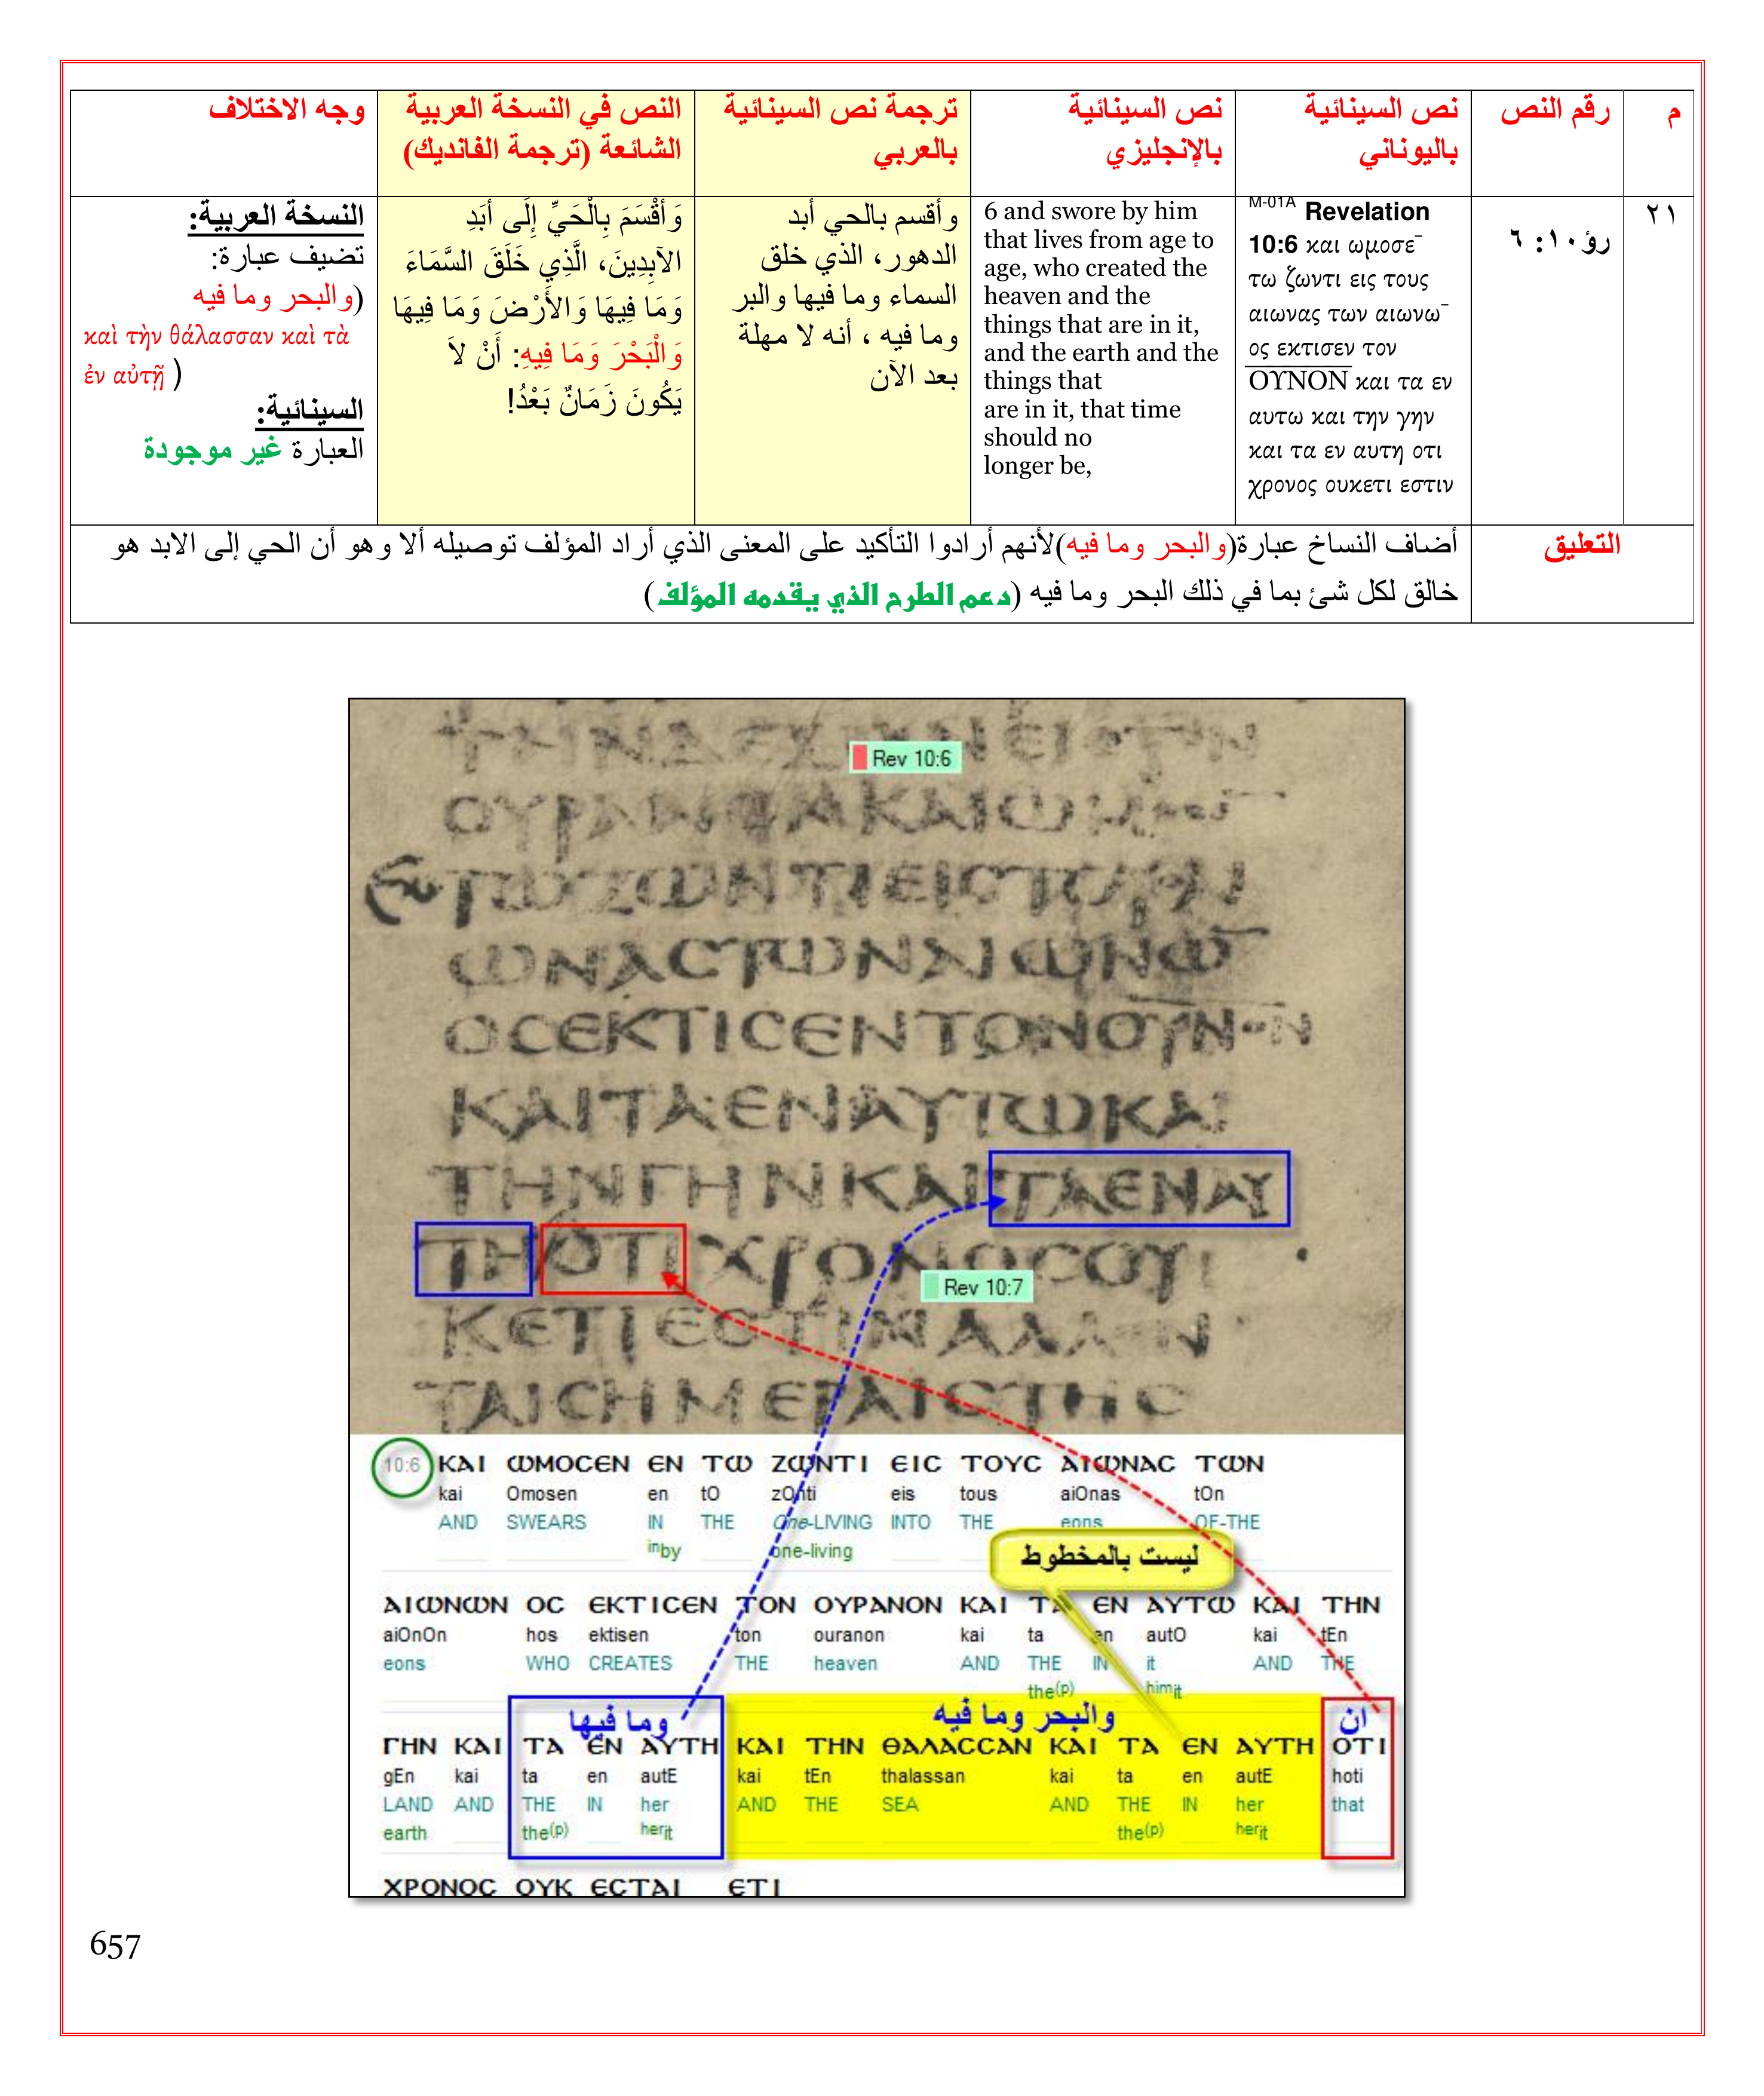 م
رقم النص
نص السينائية
باليوناني
نص السينائية
بالإنجليزي
ترجمة نص السينائية
بالعربي
النص في النسخة العربية
الشائعة (ترجمة الفانديك)
وجه الاختلاف
٢١
رؤ١٠: ٦
M-01A Revelation
10:6 και ωμοσε¯
τω ζωντι εις τους
αιωνας των αιωνω¯
ος εκτισεν τον
ΟΥΝΟΝ και τα εν
αυτω και την γην
και τα εν αυτη οτι
χρονος ουκετι εστιν
6 and swore by him
that lives from age to
age, who created the
heaven and the
things that are in it,
and the earth and the
things that
are in it, that time
should no
longer be,
وأقسم بالحي أبد
الدهور، الذي خلق
السماء وما فيها والبر
وما فيه ، أنه لا مهلة
بعد الآن
وَأَقْسَمَ بِالْحَيِّ إِلَى أَبَدِ
الآبِدِينَ، الَّذِي خَلَقَ السَّمَاءَ
وَمَا فِيهَا وَالأَرْضَ وَمَا فِيهَا
وَالْبَحْرَ وَمَا فِيهِ: أَنْ لاَ
يَكُونَ زَمَانٌ بَعْدُ!
النسخة العربية:
تضيف عبارة:
(والبحر وما فيه
καὶ τὴν θάλασσαν καὶ τὰ
ἐν αὐτῇ )
السينائية:
العبارة غير موجودة
التعليق
أضاف النساخ عبارة(والبحر وما فيه)لأنهم أرادوا التأكيد على المعنى الذي أراد المؤلف توصيله ألا وهو أن الحي إلى الابد هو
خالق لكل شئ بما في ذلك البحر وما فيه (دعم الطرح الذي يقدمه المؤلف)
Rev 10:6
ΤΩΖΩΝΤΙΕΙϹΤΟΥϹ
ΩΝΑϹΤΩΝΑΙΩΝΩ¯
ΟϹΕΚΤΙϹΕΝΤΟΝΟΥΝΟΝ
ΚΑΙΤΑΕΝΑΥΤΩΚΑΙ
ΤΗΝΓΗΝΚΑΙΤΑΕΝΑΥ
ΤΗΟΤΙΧΡΟΝΟϹΟΥ
Rev 10:7
ΚΕΤΙΕϹΤΙΝΑΛΛΕΝ
ΤΑΙϹΗΜΕΡΑΙϹΤΗϹ
10:6 ΚΑΙ ΩΜΟϹΕΝ ΕΝ ΤΩ ΖΩΝΤΙ ΕΙϹ ΤΟΥϹ ΑΙΩΝΑϹ ΤΩΝ
kai Omosen en tO zOnti eis tous aiOnas tOn
AND SWEARS IN THE One-LIVING INTO THE eons OF-THE
inby one-living
ليست بالمخطوط
ΑΙΩΝΩΝ ΟϹ ΕΚΤΙϹΕΝ ΤΟΝ ΟΥΡΑΝΟΝ ΚΑΙ ΤΑ ΕΝ ΑΥΤΩ ΚΑΙ ΤΗΝ
aiOnOn hos ektisen ton ouranon kai ta en autO kai tEn
eons WHO CREATES THE heaven AND THE IN it AND THE
the(p) himit
وما فيها والبحر وما فيه ان
ΓΗΝ ΚΑΙ ΤΑ ΕΝ ΑΥΤΗ ΚΑΙ ΤΗΝ ΘΑΛΑϹϹΑΝ ΚΑΙ ΤΑ ΕΝ ΑΥΤΗ ΟΤΙ
gEn kai ta en autE kai tEn thalassan kai ta en autE hoti
LAND AND THE IN her AND THE SEA AND THE IN her that
earth the(p) herit the(p) herit
ΧΡΟΝΟϹ ΟΥΚ ΕϹΤΑΙ ΕΤΙ
657